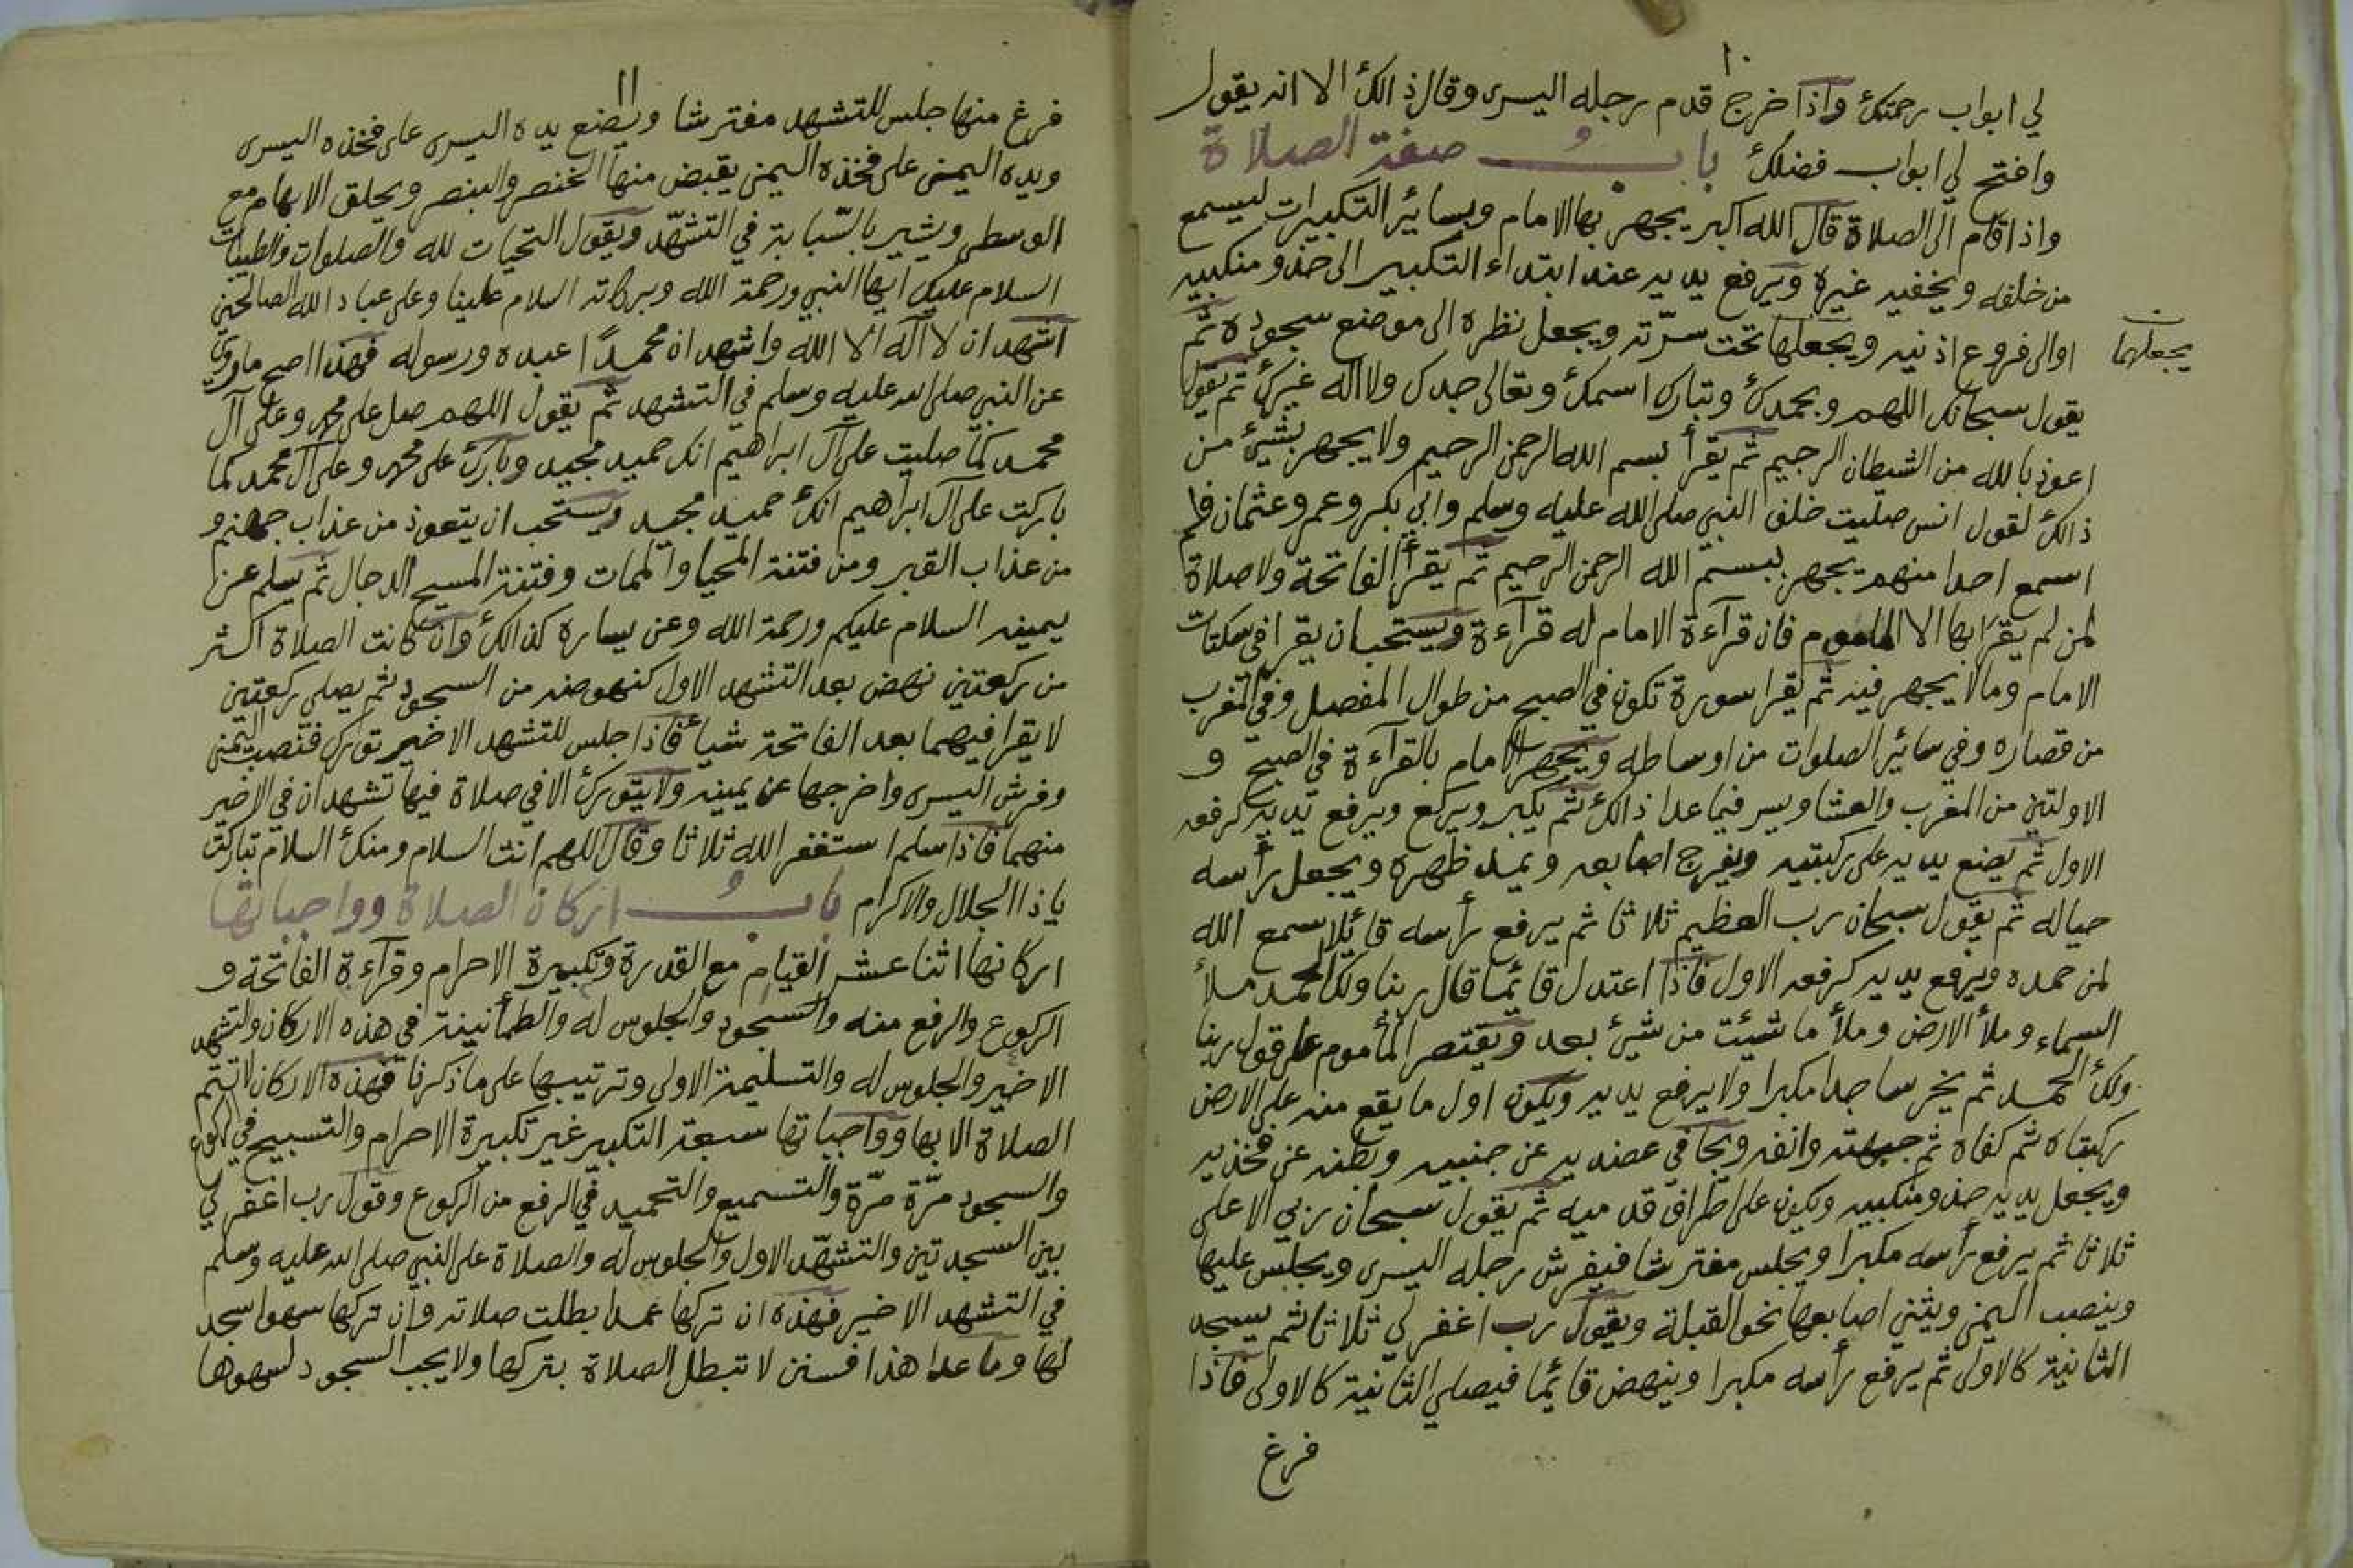 ١٠
لي ابواب رحمتك واذا خرج قدم رجله اليسرى وقال ذالك الا انه يقول
وافتح لي ابواب فضلك باب صفة الصلاة
واذا قام الى الصلاة قال الله اكبر يجهر بها الامام وبسائر التكبيرات ليسمع
من خلفه ويخفيه غيره ويرفع يديه عند ابتداء التكبير الى حذو منكبيه
او الى فروع اذنيه ويجعلها تحت سرّته ويجعل نظره الى موضع سجوده ثم
يجعلهما
يقول سبحانك اللهم وبحمدك وتبارك اسمك وتعالى جدك ولا اله غيرك ثم يقول
اعوذ بالله من الشيطان الرجيم ثم يقرأ بسم الله الرحمن الرحيم ولا يجهر بشيئ من
ذالك لقول انس صليت خلف النبي صلى الله عليه وسلم وابي بكر وعمر وعثمان فلم
اسمع احدا منهم يجهر ببسم الله الرحمن الرحيم ثم يقرأ الفاتحة ولا صلاة
لمن لم يقرا بها الا الماموم فان قرآءة الامام له قرآءة ويستحب ان يقرا في سكتات
الامام ومالا يجهر فيه ثم يقرا سورة تكون في الصبح من طوال المفصل وفي المغرب
من قصاره وفي سائر الصلوات من اوساطه ويجهر الامام بالقرآءة في الصبح و
الاولتين من المغرب والعشا ويسر فيما عدا ذالك ثم يكبر ويركع ويرفع يديه كرفعه
الاول ثم يضع يديه على ركبتيه ويفرج اصابعه ويمد ظهره ويجعل رأسه
حياله ثم يقول سبحان رب العظيم ثلاثا ثم يرفع رأسه قائلا سمع الله
لمن حمده ويرفع يديه كرفعه الاول فاذا اعتدل قائما قال ربنا ولك الحمد ملأ
السماء وملأ الارض وملأ ما شيئت من شيئ بعد ويقتصر المأموم على قول ربنا
ولك الحمد ثم يخر ساجدا مكبرا ولا يرفع يديه ويكون اول ما يقع منه على الارض
ركبتاه ثم كفاه ثم جبهته وانفه ويجافي عضديه عن جنبيه وبطنه عن فخذيه
ويجعل يديه حذو منكبيه ويكون على اطراف قدميه ثم يقول سبحان ربي الاعلى
ثلاثا ثم يرفع رأسه مكبرا ويجلس مفترشا فيفرش رجله اليسرى ويجلس عليها
وينصب اليمنى ويثني اصابعها نحو القبلة ويقول رب اغفر لي ثلاثا ثم يسجد
الثانية كالاولى ثم يرفع رأسه مكبرا وينهض قائما فيصلي الثانية كالاولى فاذا
فرغ
١١
فرغ منها جلس للتشهد مفترشا ويضع يده اليسرى على فخذه اليسرى
ويده اليمنى على فخذه اليمنى يقبض منها الخنصر والبنصر ويحلق الابهام مع
الوسطى ويشير بالسّبابة في التشهّد ويقول التحيات لله والصلوات والطيبات
السلام عليك ايها النبي ورحمة الله وبركاته السلام علينا وعلى عباد الله الصالحين
اشهد ان لا اله الا الله واشهد ان محمدًا عبده ورسوله فهذا اصح ما روي
عن النبي صلى الله عليه وسلم في التشهد ثم يقول اللهم صل على محمد وعلى آل
محمد كما صليت على آل ابراهيم انك حميد مجيد وبارك على محمد وعلى آل محمد كما
باركت على آل ابراهيم انك حميد مجيد ويستحب ان يتعوذ من عذاب جهنم و
من عذاب القبر ومن فتنة المحيا والممات وفتنة المسيح الدجال ثم يسلم عن
يمينه السلام عليكم ورحمة الله وعن يساره كذالك وان كانت الصلاة اكثر
من ركعتين نهض بعد التشهد الاول كنهوضه من السجود ثم يصلى ركعتين
لا يقرا فيهما بعد الفاتحة شيأ فاذا جلس للتشهد الاخير تورك فنصب اليمنى
وفرش اليسرى واخرجها عن يمينه ولا يتورك الا في صلاة فيها تشهدان في الاخير
منهما فاذا سلم استغفر الله ثلاثا وقال اللهم انت السلام ومنك السلام تباركت
يا ذا الجلال والاكرام باب اركان الصلاة وواجباتها
اركانها اثنا عشر القيام مع القدرة وتكبيرة الاحرام وقرآءة الفاتحة و
الركوع والرفع منه والسجود والجلوس له والطمأنينة في هذه الاركان والتشهد
الاخير والجلوس له والتسليمة الاولى وترتيبها على ما ذكرنا فهذه الاركان لا تتم
الصلاة الا بها وواجباتها سبعة التكبير غير تكبيرة الاحرام والتسبيح في الركوع
والسجود مرّة مرّة والتسميع والتحميد في الرفع من الركوع وقول رب اغفر لي
بين السجدتين والتشهّد الاول والجلوس له والصلاة على النبي صلى الله عليه وسلم
في التشهد الاخير فهذه ان تركها عمدا بطلت صلاته وان تركها سهوا سجد
لها وما عدا هذا فسنن لا تبطل الصلاة بتركها ولا يجب السجود لسهوها